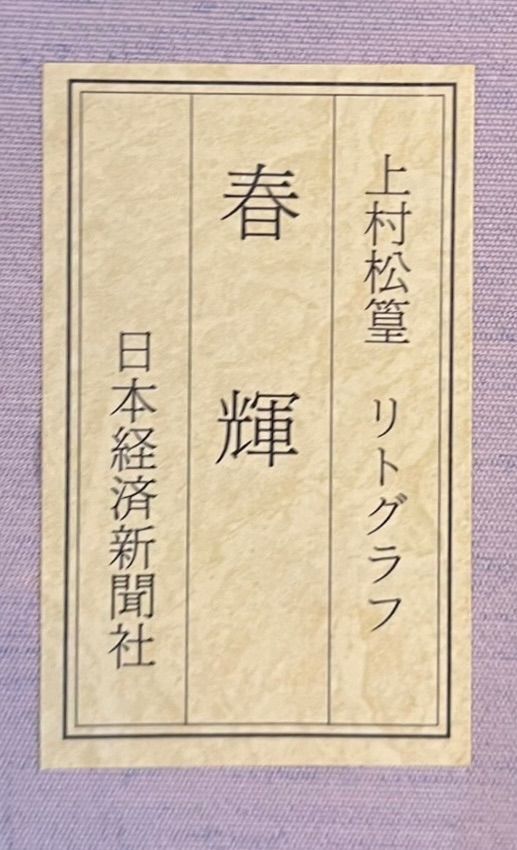 上村松篁 リトグラフ
春輝
日本経済新聞社